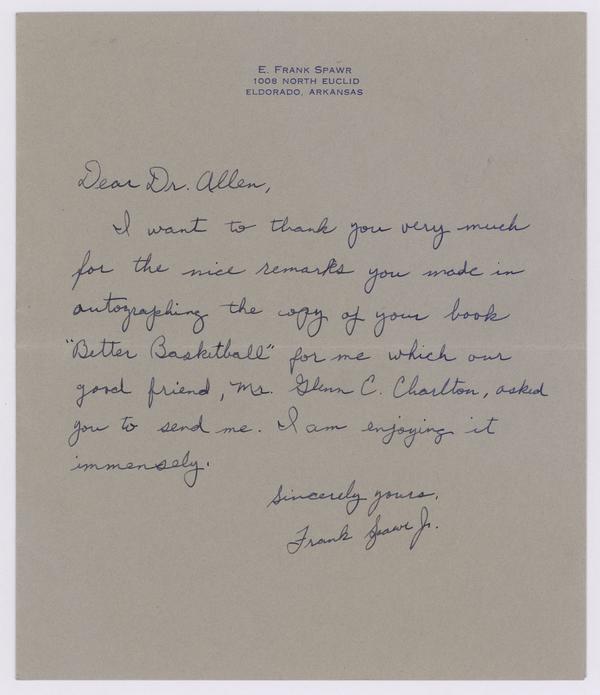 E. Frank Spawr
1008 North Euclid
Eldorado, Arkansas
Dear Dr. Allen,
I want to thank you very much
for the nice remarks you made in
autographing the copy of your book
"Better Basketball" for me which our
good friend, Mr. Glenn C. Charlton, asked
you to send me. I am enjoying it
immensely.
Sincerely yours,
Frank Spawr Jr.